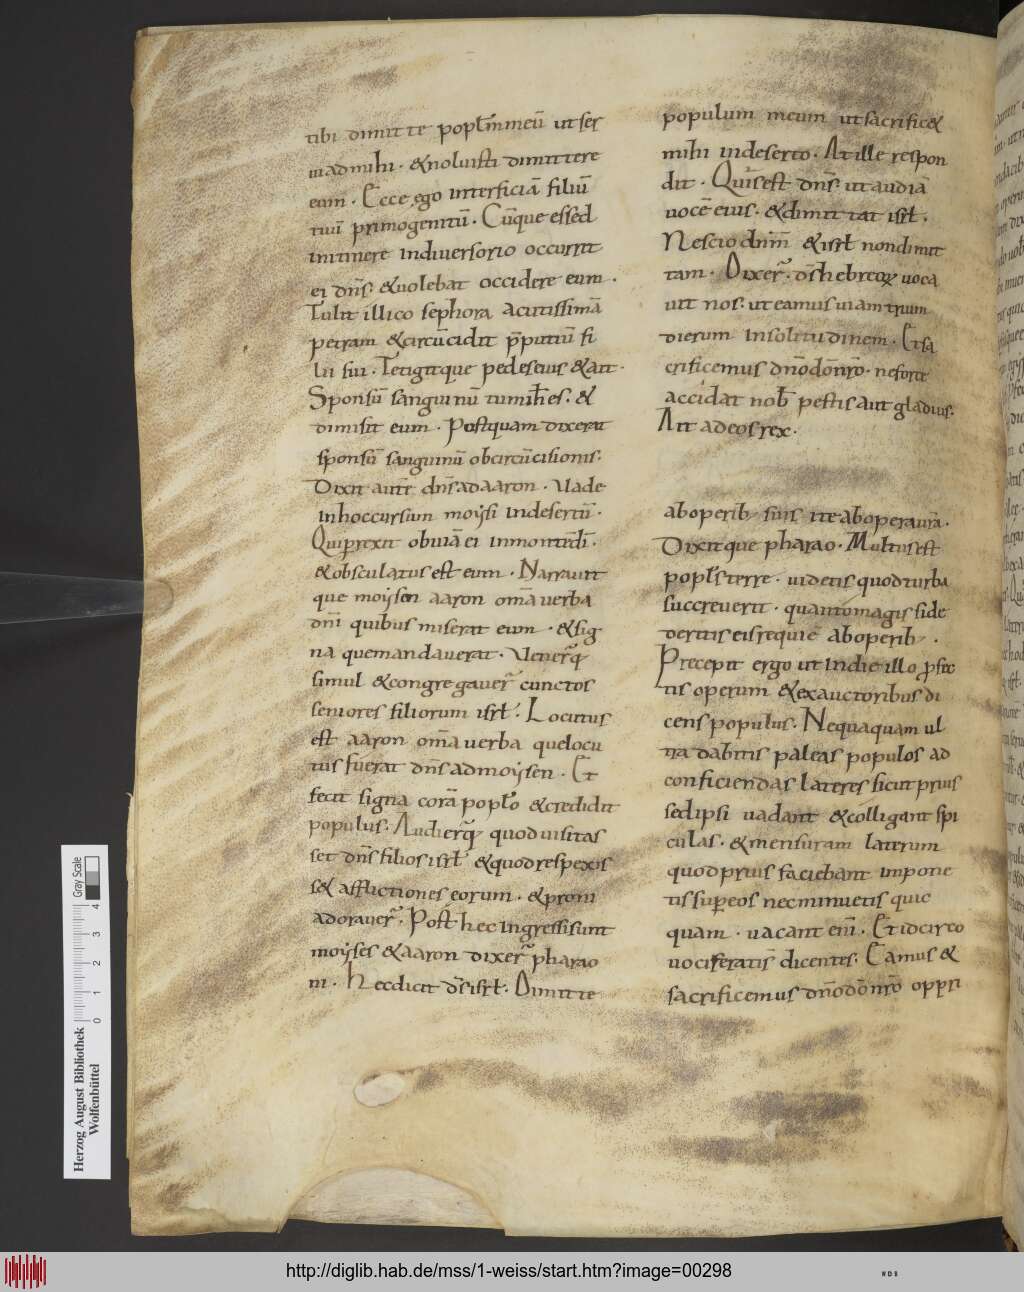 tibi dimitte popl̄m meū ut ser
uiad mihi · & noluisti dimittere
eum · Ecce ego interficiā filiū
tuū primogenitū · Cūque esset
in itinere in diuersorio occurrit
ei dn̄s · & uolebat occidere eum ·
Tulit illico sephora acutissimā
petram & circūcidit p̄putiū fi
lii sui · Tetigitque pedes eius & ait ·
Sponsus̄ sanguinū tu mihi es · &
dimisit eum · Postquam dixerat
sponsus̄ sanguinū ob circūcisionis ·
Dixit aut̄ dn̄s ad aaron · Vade
in hoccursum moysi in desertū ·
Qui prexit obuiā ei in monte dī ·
& obsculatus est eum · Narrauit
que moysen aaron om̄a uerba
dn̄i quibus miserat eum · & sig
na que mandauerat · Veneꝝq
simul & congregauer̄ cunctos
seniores filiorum isrł · Locutus
est aaron om̄a uerba que locu
tus fuerat dn̄s ad moysen · Et
fecit signa corā popl̄o & credidit
populus · Audierq̄ quod uisitas
set dn̄s filios isrł & quod respexis
s& afflictiones eorum · & proni
adorauer̄ · Post hec ingressi sunt
moyses & aaron dixer̄ pharao
ni · Hec dicit dn̄s isrł · Dimitte
populum meum ut sacrific&
mihi in deserto · At ille respon
dit · Quis est dn̄s ut audiā
uocē eius · & dimittat isrł ·
Nescio dn̄m & isrł non dimit
tam · Dixer̄ · ds̄ hebreoꝝ uoca
uit nos · ut eamus uiam trium
dierum in solitudinem · Et sa
crificemus dn̄o dō nr̄o · ne forte
accidat nob̄ pestis aut gladius ·
Ait ad eos rex ·
ab operib; suis ite ab opera ur̄a ·
Dixitque pharao · Multus est
popl̄s terre · uidetis quod turba
succreuerit · quanto magis si de
deritis eis requiē ab operib; ·
Precepit ergo ut in die illo p̱fec
tis operum & exauctoribus di
cens populus · Nequaquam ul
tra dabitis paleas populos ad
conficiendas lateres sicut prius
sed ipsi uadant & colligant spi
culas · & mensuram laterum
quod prius faciebant impone
tis sup̱ eos nec minuetis quic
quam · uacant eni̅ · Et idcirco
uociferatis̄ dicentes · Eamus &
sacrificemus dn̄o dō nr̄o oppri
Gray Scale
0 1 2 3 4
Herzog August Bibliothek
Wolfenbüttel
http://diglib.hab.de/mss/1-weiss/start.htm?image=00298